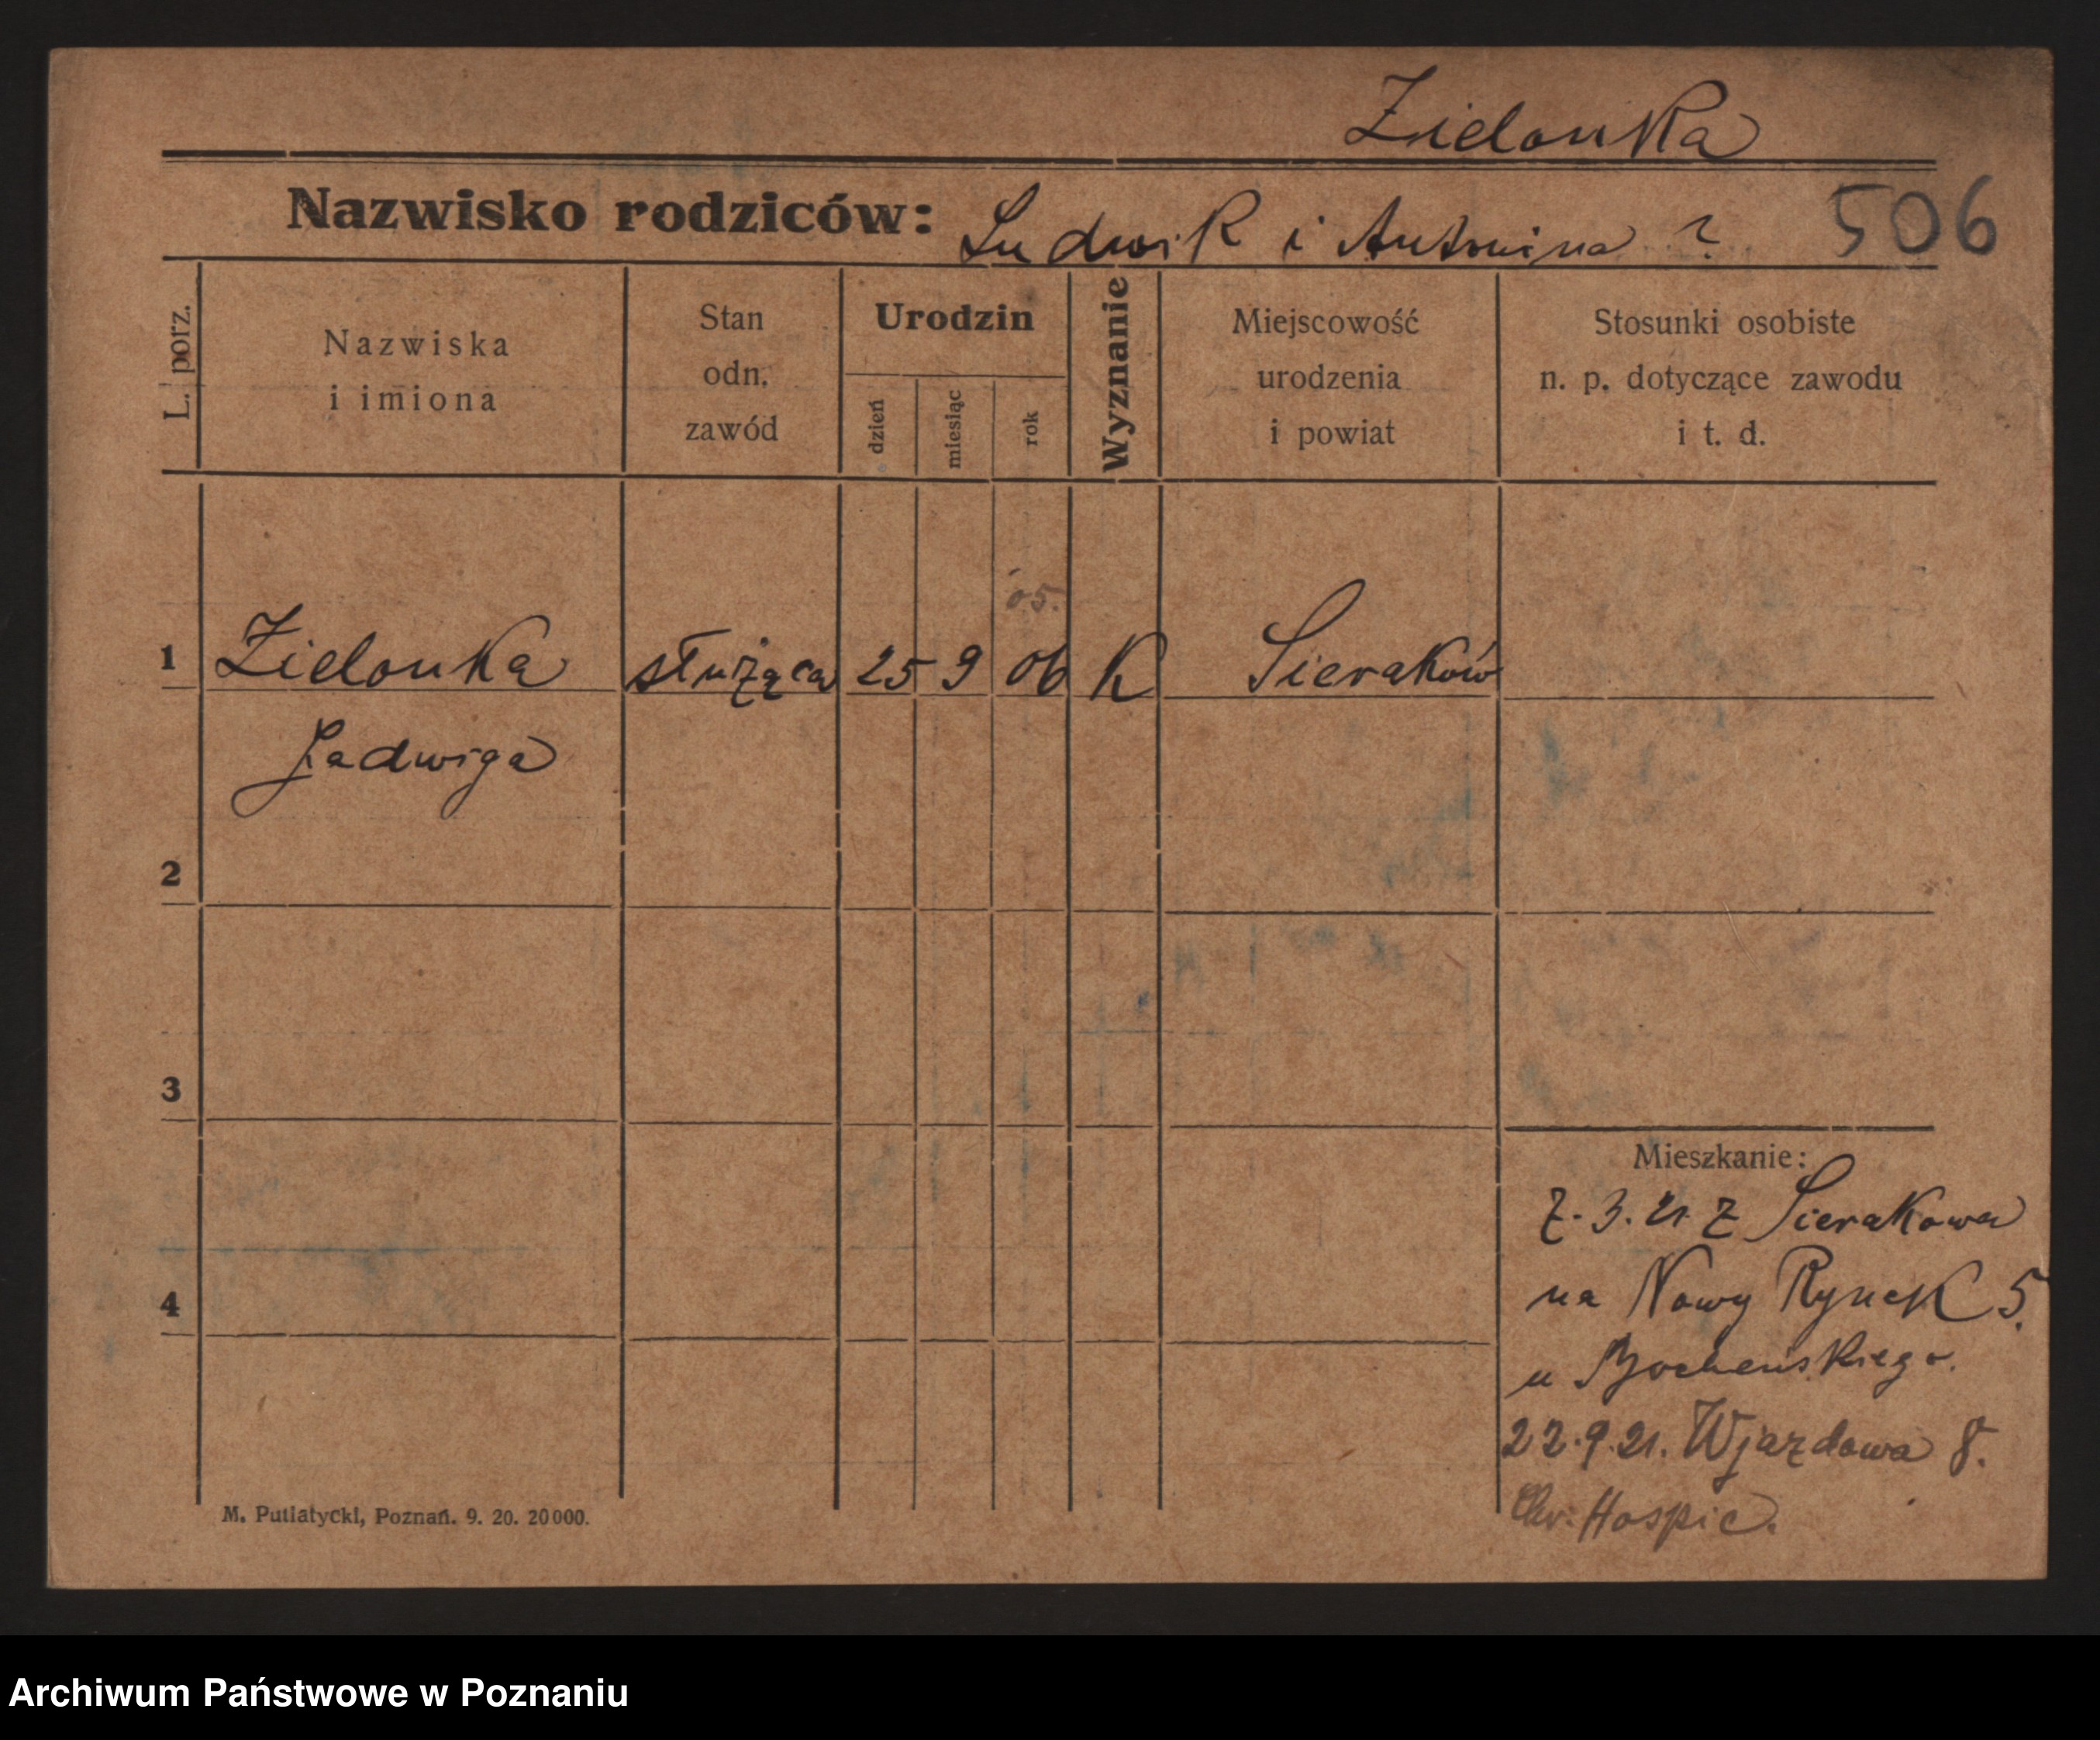 Zielonka
Nazwisko rodziców: Ludwik i Antonina ? 506
L. porz.
Nazwiska
i imiona
Stan
odn.
zawód
Urodzin
dzień
miesiąc
rok
Wyznanie
Miejscowość
urodzenia
i powiat
Stosunki osobiste
n. p. dotyczące zawodu
i t. d.
05.
1 Zielonka służąca 25 9 06 K Sieraków
Jadwiga
2
3
Mieszkanie:
7.3.21 z Sierakowa
4
na Nowy Rynek 5.
u Bocheńskiego.
22.9.21. Wjazdowa 8.
Chr. Hospic.
M. Putiatycki, Poznań. 9. 20. 20000.
Archiwum Państwowe w Poznaniu